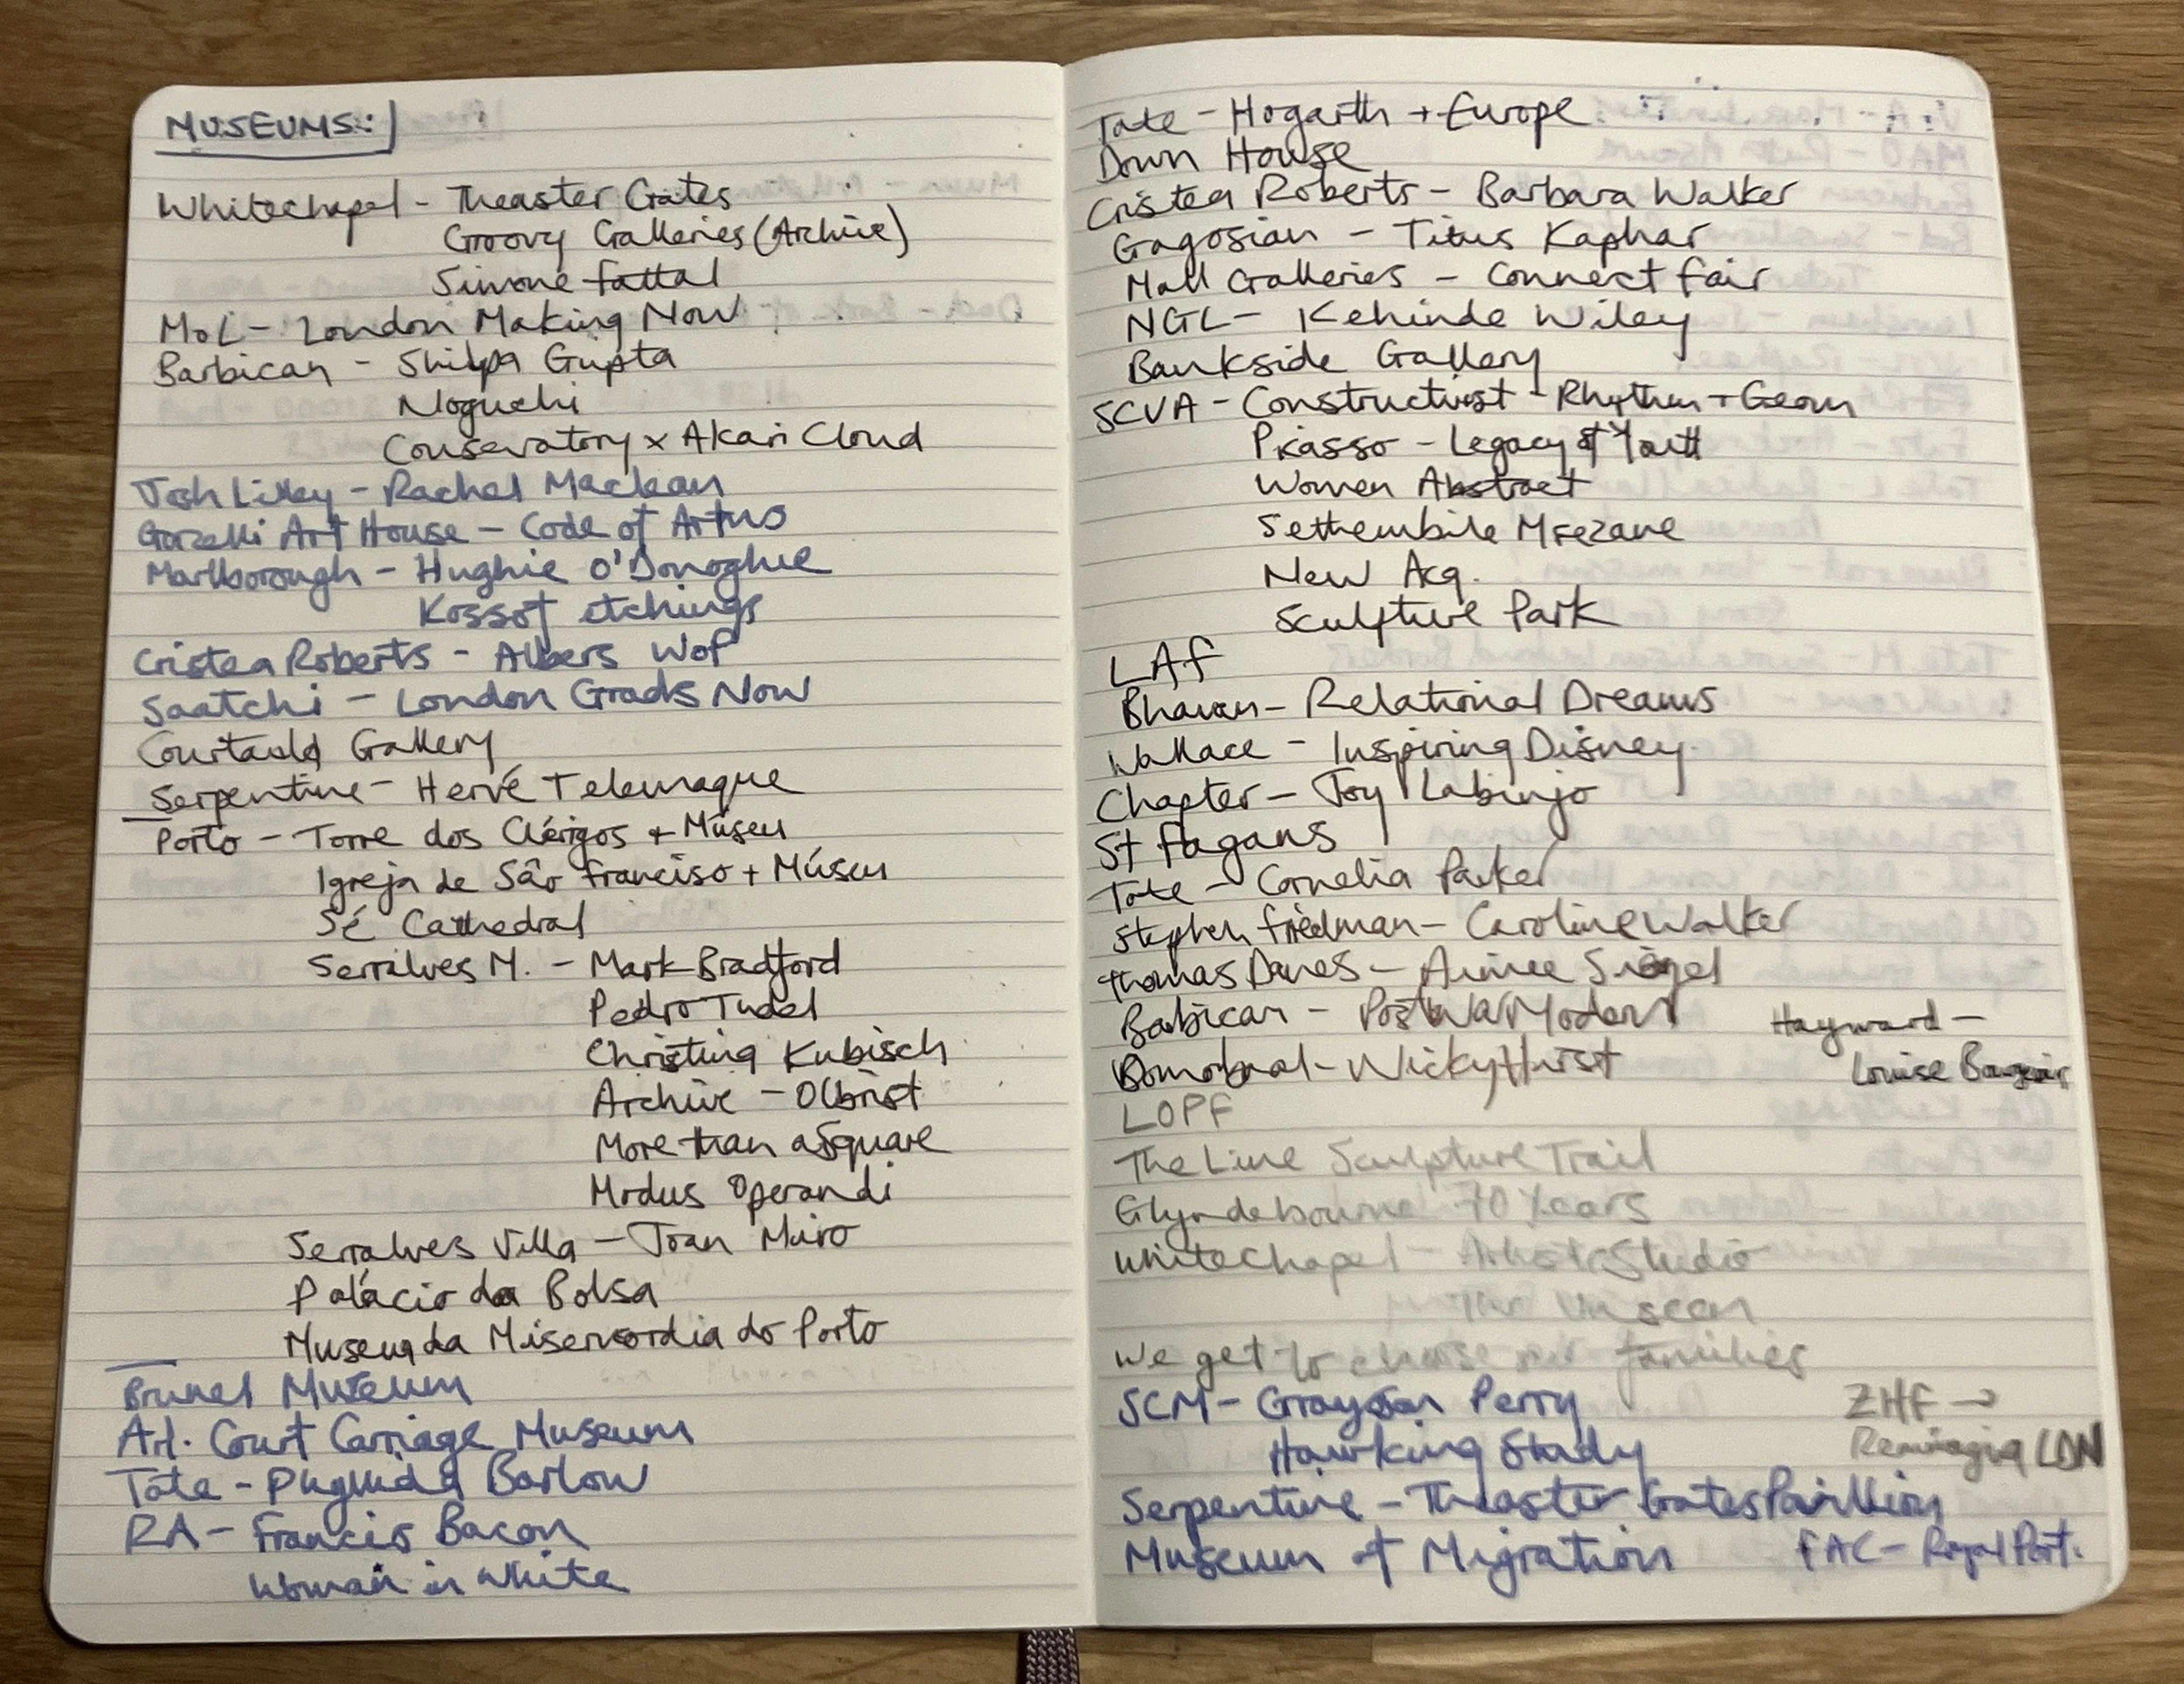 MUSEUMS:
Whitechapel - Theaster Gates
Groovy Galleries (Archive)
Simone Fattal
MoL - London Making Now
Barbican - Shilpa Gupta
Noguchi
Conservatory x Akari Cloud
Josh Lilley - Rachel Maclean
Gazelli Art House - Code of Art
Marlborough - Hughie O'Donoghue
Kossof etchings
Cristea Roberts - Albers WoP
Saatchi - London Grads Now
Courtauld Gallery
Serpentine - Hervé Telemaque
Porto - Torre dos Clérigos + Múseu
Igreja de São Franciso + Múseu
Sé Cathedral
Serralves M. - Mark Bradford
Pedro Tudel
Christina Kubisch
Archive - Olbrist
More than a Square
Modus Operandi
Serralves Villa - Joan Miro
Palácio da Bolsa
Museu da Misericordia do Porto
Brunel Museum
Art. Court Carriage Museum
Tate - Phyllida Barlow
RA - Francis Bacon
Woman in White
Tate - Hogarth + Europe
Down House
Cristea Roberts - Barbara Walker
Gagosian - Titus Kaphar
Mall Galleries - Connect Fair
NGL - Kehinde Wiley
Bankside Gallery
SCVA - Constructivist - Rhythm + Geom
Picasso - Legacy of Youth
Women Abstract
Sethembile Msezane
New Acq.
Sculpture Park
LAF
Bhavan - Relational Dreams
Wallace - Inspiring Disney.
Chapter - Joy Labinjo
St Fagans
Tate - Cornelia Parker
Stephen Friedman - Caroline Walker
Thomas Danes - Aimee Siegel
Barbican - Postwar Modern
Hayward -
Louise Bourgeois
Domobaal - Nicky Hirst
LOPF
The Line Sculpture Trail
Glyndebourne 70 Years
Whitechapel - Artist Studio
The Unseen
We get to choose our families
SCM - Grayson Perry
ZHF →
Hawking Study
Reimagig LDN
Serpentine - Theaster Gates Pavillion
Museum of Migration
FAC - Royal Port.